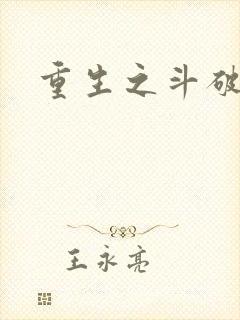 重生之斗破
王永亮